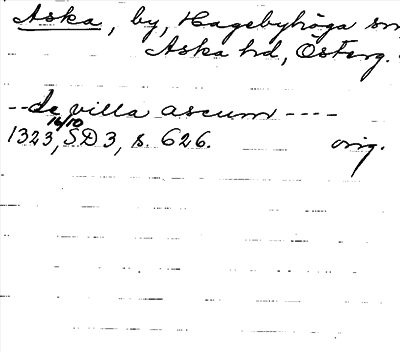 Aska, by, Hagebyhöga sn
Aska hd, Österg.
--de villa ascum ----
16/10
1323, SD 3, s. 626. orig.